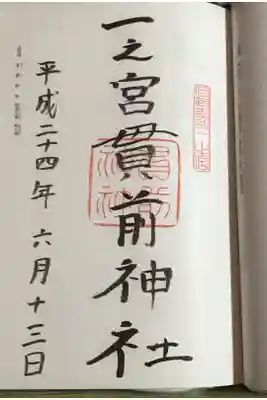 一之宮貫前神社
平成二十四年六月十三日